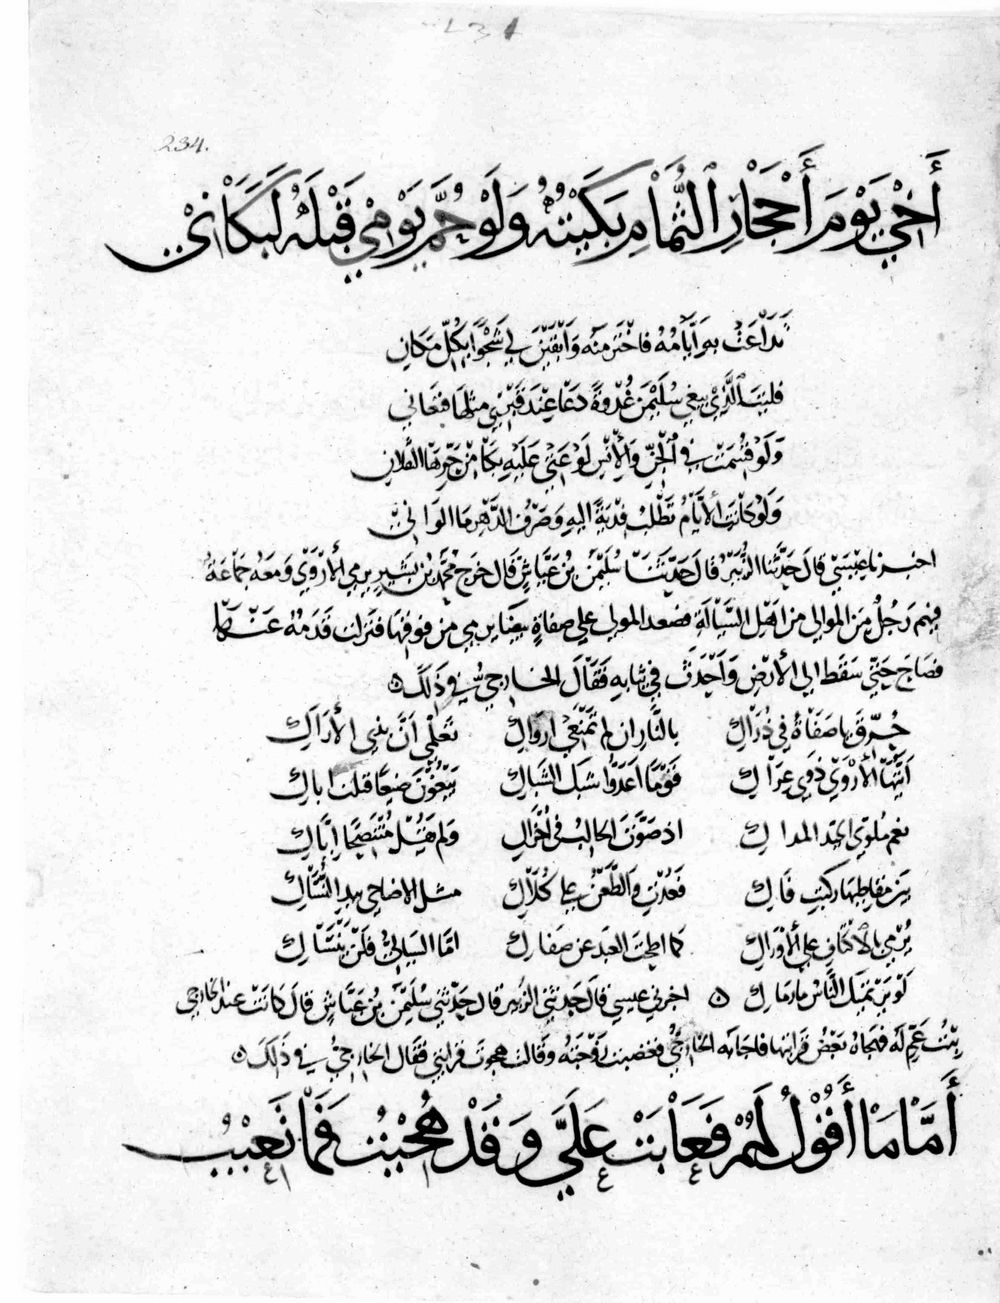 234.
أَخِي يَوْمَ أَحْجَارِ الثُّمَامِ بَكَيْتُهُ وَلَوْ حُمَّ يَوْمِي قَبْلَهُ لَبَكَانِي
تَدَاعَتْ بِهِ أَيَّامُهُ فاخْتَرَمْنَه وَأَبْقَيْنَ لِي شَجْوًا بِكُلِّ مَكَانِ
فليتَ الَّذِي ينعى سُلَيْمَنَ غُدْوَةً دَعَا عِنْدَ قَبْرِي مثلها فنعاني
وَلَوْ قُسِمَتْ في الْجِنِّ وَالْإِنْسِ لَوْعَتِي عَلَيْهِ بَكَا مِنْ حَرِّهَا الثقلان
وَلَوْ كَانَتِ الأَيَّامُ تَطْلُبُ فِدْيَةً اليه وَصَرْفُ الدَّهْرِ مَا الوانيِ
اخبرنا عِيسَى قال حَدَّثَنَا الزُّبَيْرُ قال حَدَّثَنَا سُلَيْمَنُ بْنُ عَيَّاشٍ قَال خَرَجَ مُحَمَّدُ بْنُ بَشِيرٍ يرمي الأَرْوَى وَمَعَهُ جَمَاعَةٌ
فيهم رَجُلٌ مِنَ الموالي من اهْلِ السَّيَالَةِ فصعد المولى على صفاةٍ بيضا يرمي من فوقها فزلت قَدَمُهُ عَنْهَا
فصَاحَ حَتَّى سَقَطَ الى الأَرْضِ وَأَحْدَثَ فِي ثيابه فَقَالَ الخَارجيُّ في ذَلِكَ
حُرِّقَ يا صَفَاةُ فِي ذُرَاكِ بالنَّار ان لم تَمْنَعِي ارواكِ تَعْلَمِي أنَّ بذي الأَرَاكِ
أَيَّتُهَا الأَرْوَى ذوي عِرَاكِ قَوْمًا أَعَدُّوا شبَكَ الشباكِ يَبْغُونَ ضبعًا قتلت اباكِ
نعم مُلوي المداكِ اذ صَوَّتَ الجالب في أخْرَاكِ ولم
ركبت فَاكِ فَعُدْتِ والطَّعْنُ على كُلاكِ مثل الاضاحي بيدِ النُّسَّاكِ
يُرْمَى بالاكْتَافِ على الأَوْرَاكِ كما اطحت العبد عن صفاكِ امَّا السَّيَالِيُّ فَلَنْ يَنْسَاكِ
لَوْ يَرْتَمِيكِ النَّاس ما رماكِ اخبرني عيسى قال حدثني الزبير قال حَدَّثَنِي سُلَيْمَنُ بْنُ عَيَّاشٍ قَالَ كَانَتْ عند الخارجي
بِنْتُ عَمٍّ لَهُ فهَجَاهُ بَعْضُ قرابتها فاجابه الخَارجِيُّ فغضبت زَوْجَتُهُ وقالت هجوت قرابتي فقال الخارجيُّ في ذَلِكَ
أَمَّا مَا أَقُولُ لَهُمْ فَعَابَتْ عَلَيَّ وَقَدْ هُجِيْتُ فَمَا تَعِيْبُ